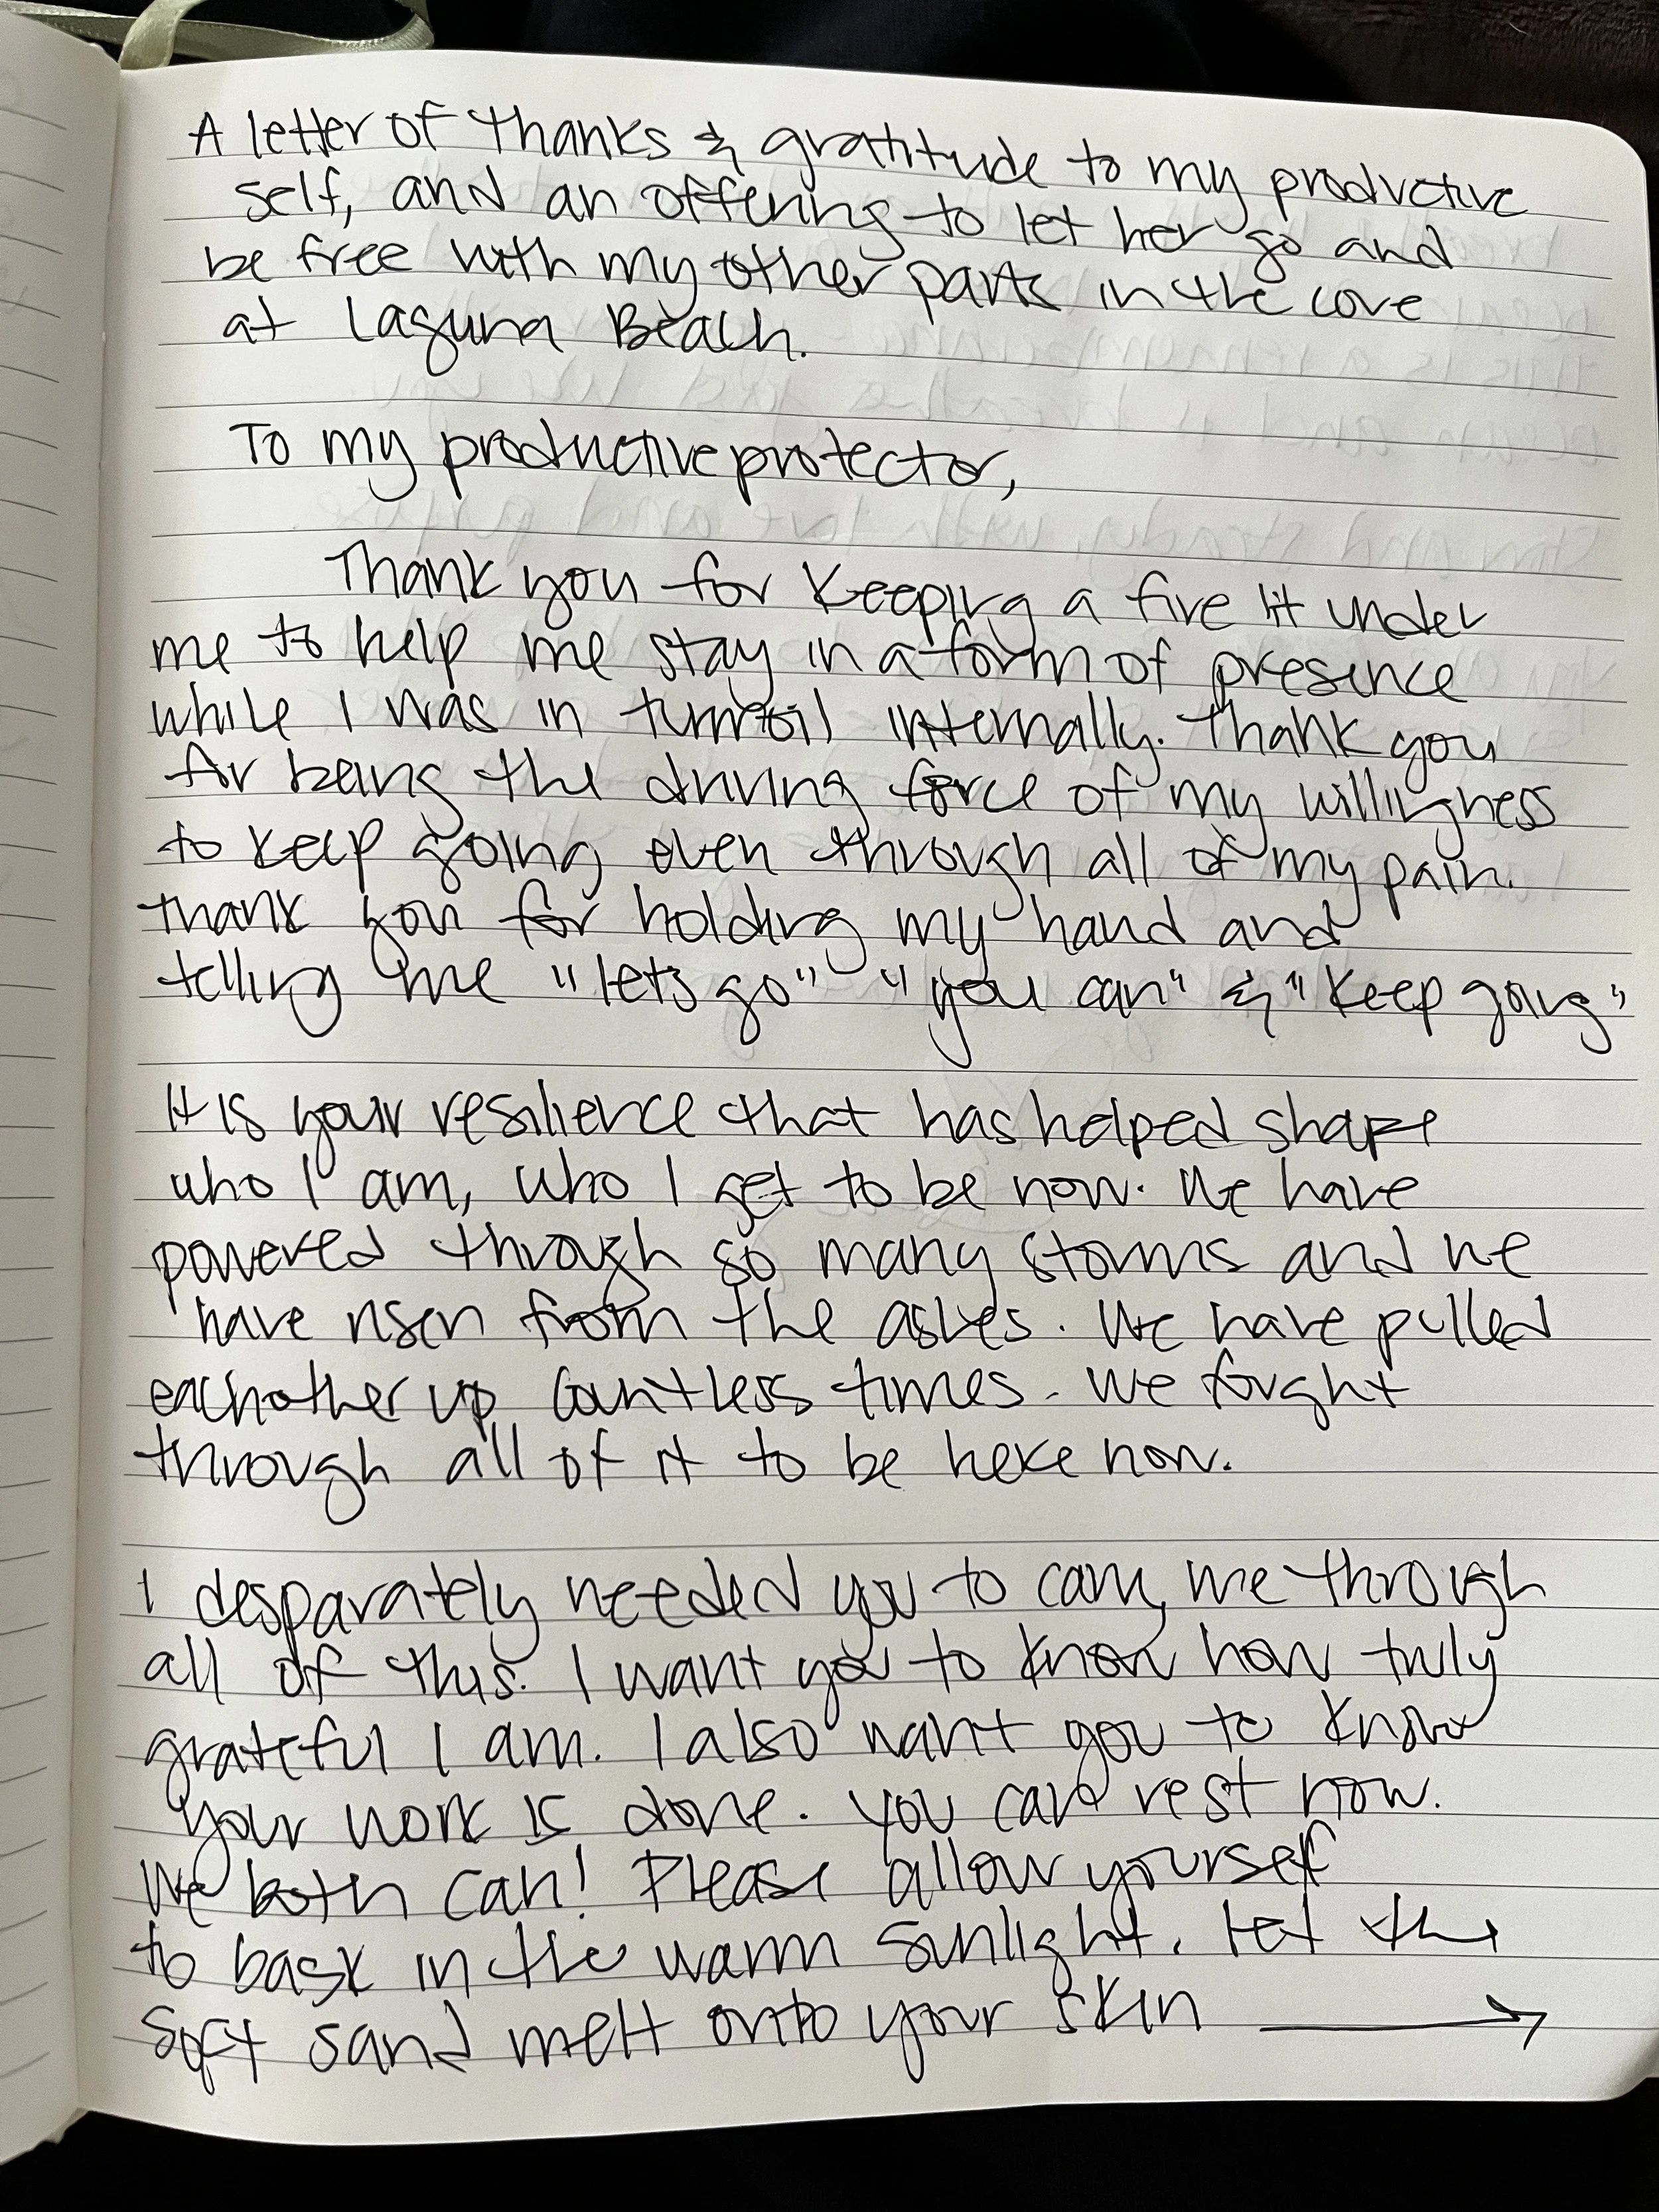 A letter of thanks & gratitude to my productive
self, and an offering to let her go and
be free with my other parts in the cove
at Laguna Beach.
To my productive protector,
Thank you for keeping a fire lit under
me to help me stay in a form of presence
while I was in turmoil internally. Thank you
for being the driving force of my willingness
to keep going even through all of my pain.
Thank you for holding my hand and
telling me "lets go" "you can" & "keep going"
It is your resilience that has helped shape
who I am, who I get to be now. We have
powered through so many storms and we
have risen from the ashes. We have pulled
eachother up countless times. We fought
through all of it to be here now.
I desparately needed you to carry me through
all of this. I want you to know how truly
grateful I am. I also want you to know
your work is done. You can rest now.
We both can! Please allow yourself
to bask in the warm sunlight. Let the
soft sand melt onto your skin →